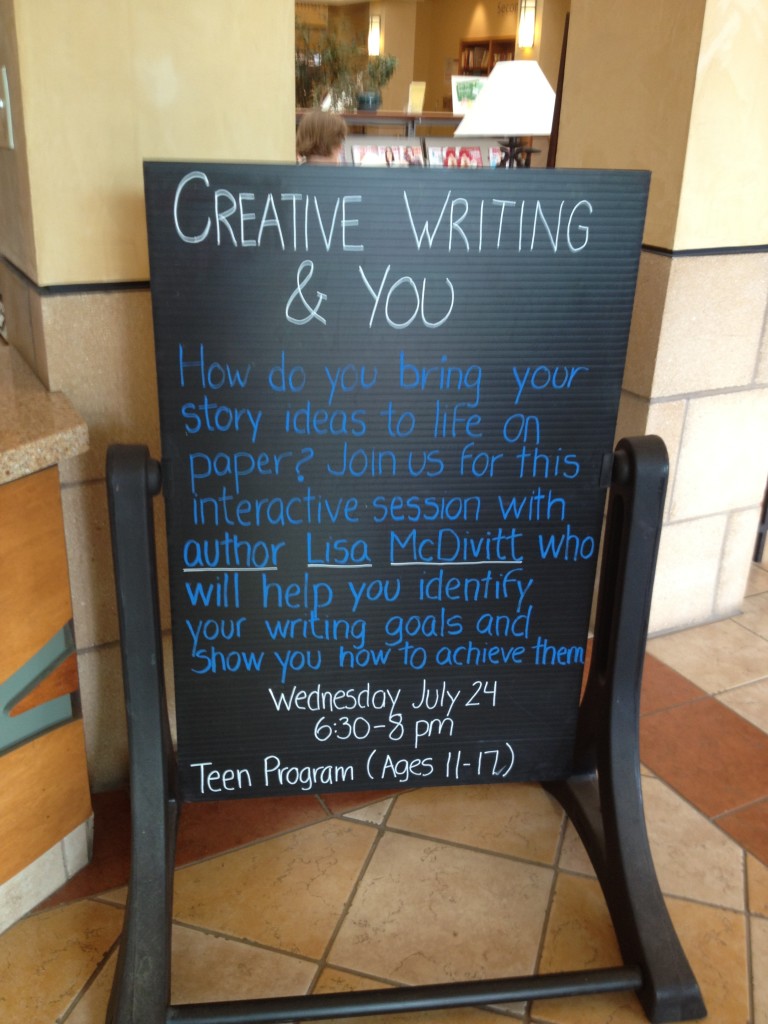 CREATIVE WRITING
& YOU
How do you bring your
story ideas to life on
paper? Join us for this
interactive session with
author Lisa McDivitt who
will help you identify
your writing goals and
show you how to achieve them
Wednesday July 24
6:30-8 pm
Teen Program (Ages 11-17)